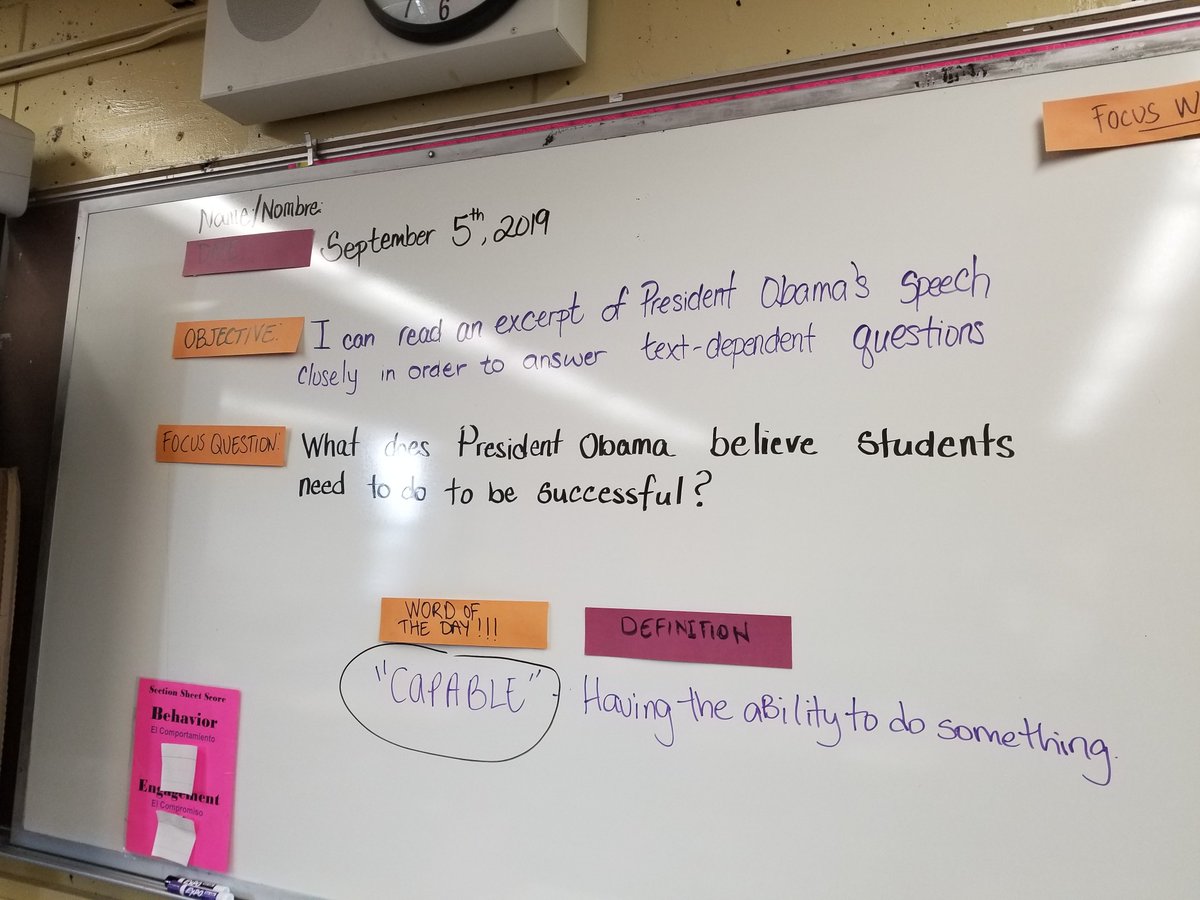 7 6
FOCUS W
Name/Nombre:
DATE: September 5th, 2019
OBJECTIVE: I can read an excerpt of President Obama's speech
closely in order to answer text-dependent questions
FOCUS QUESTION: What does President Obama believe students
need to do to be successful?
WORD OF
THE DAY!!!
DEFINITION
"CAPABLE" - Having the aBility to do something.
Section Sheet Score
Behavior
El Comportamiento
Engagement
El Compromiso
EXPO